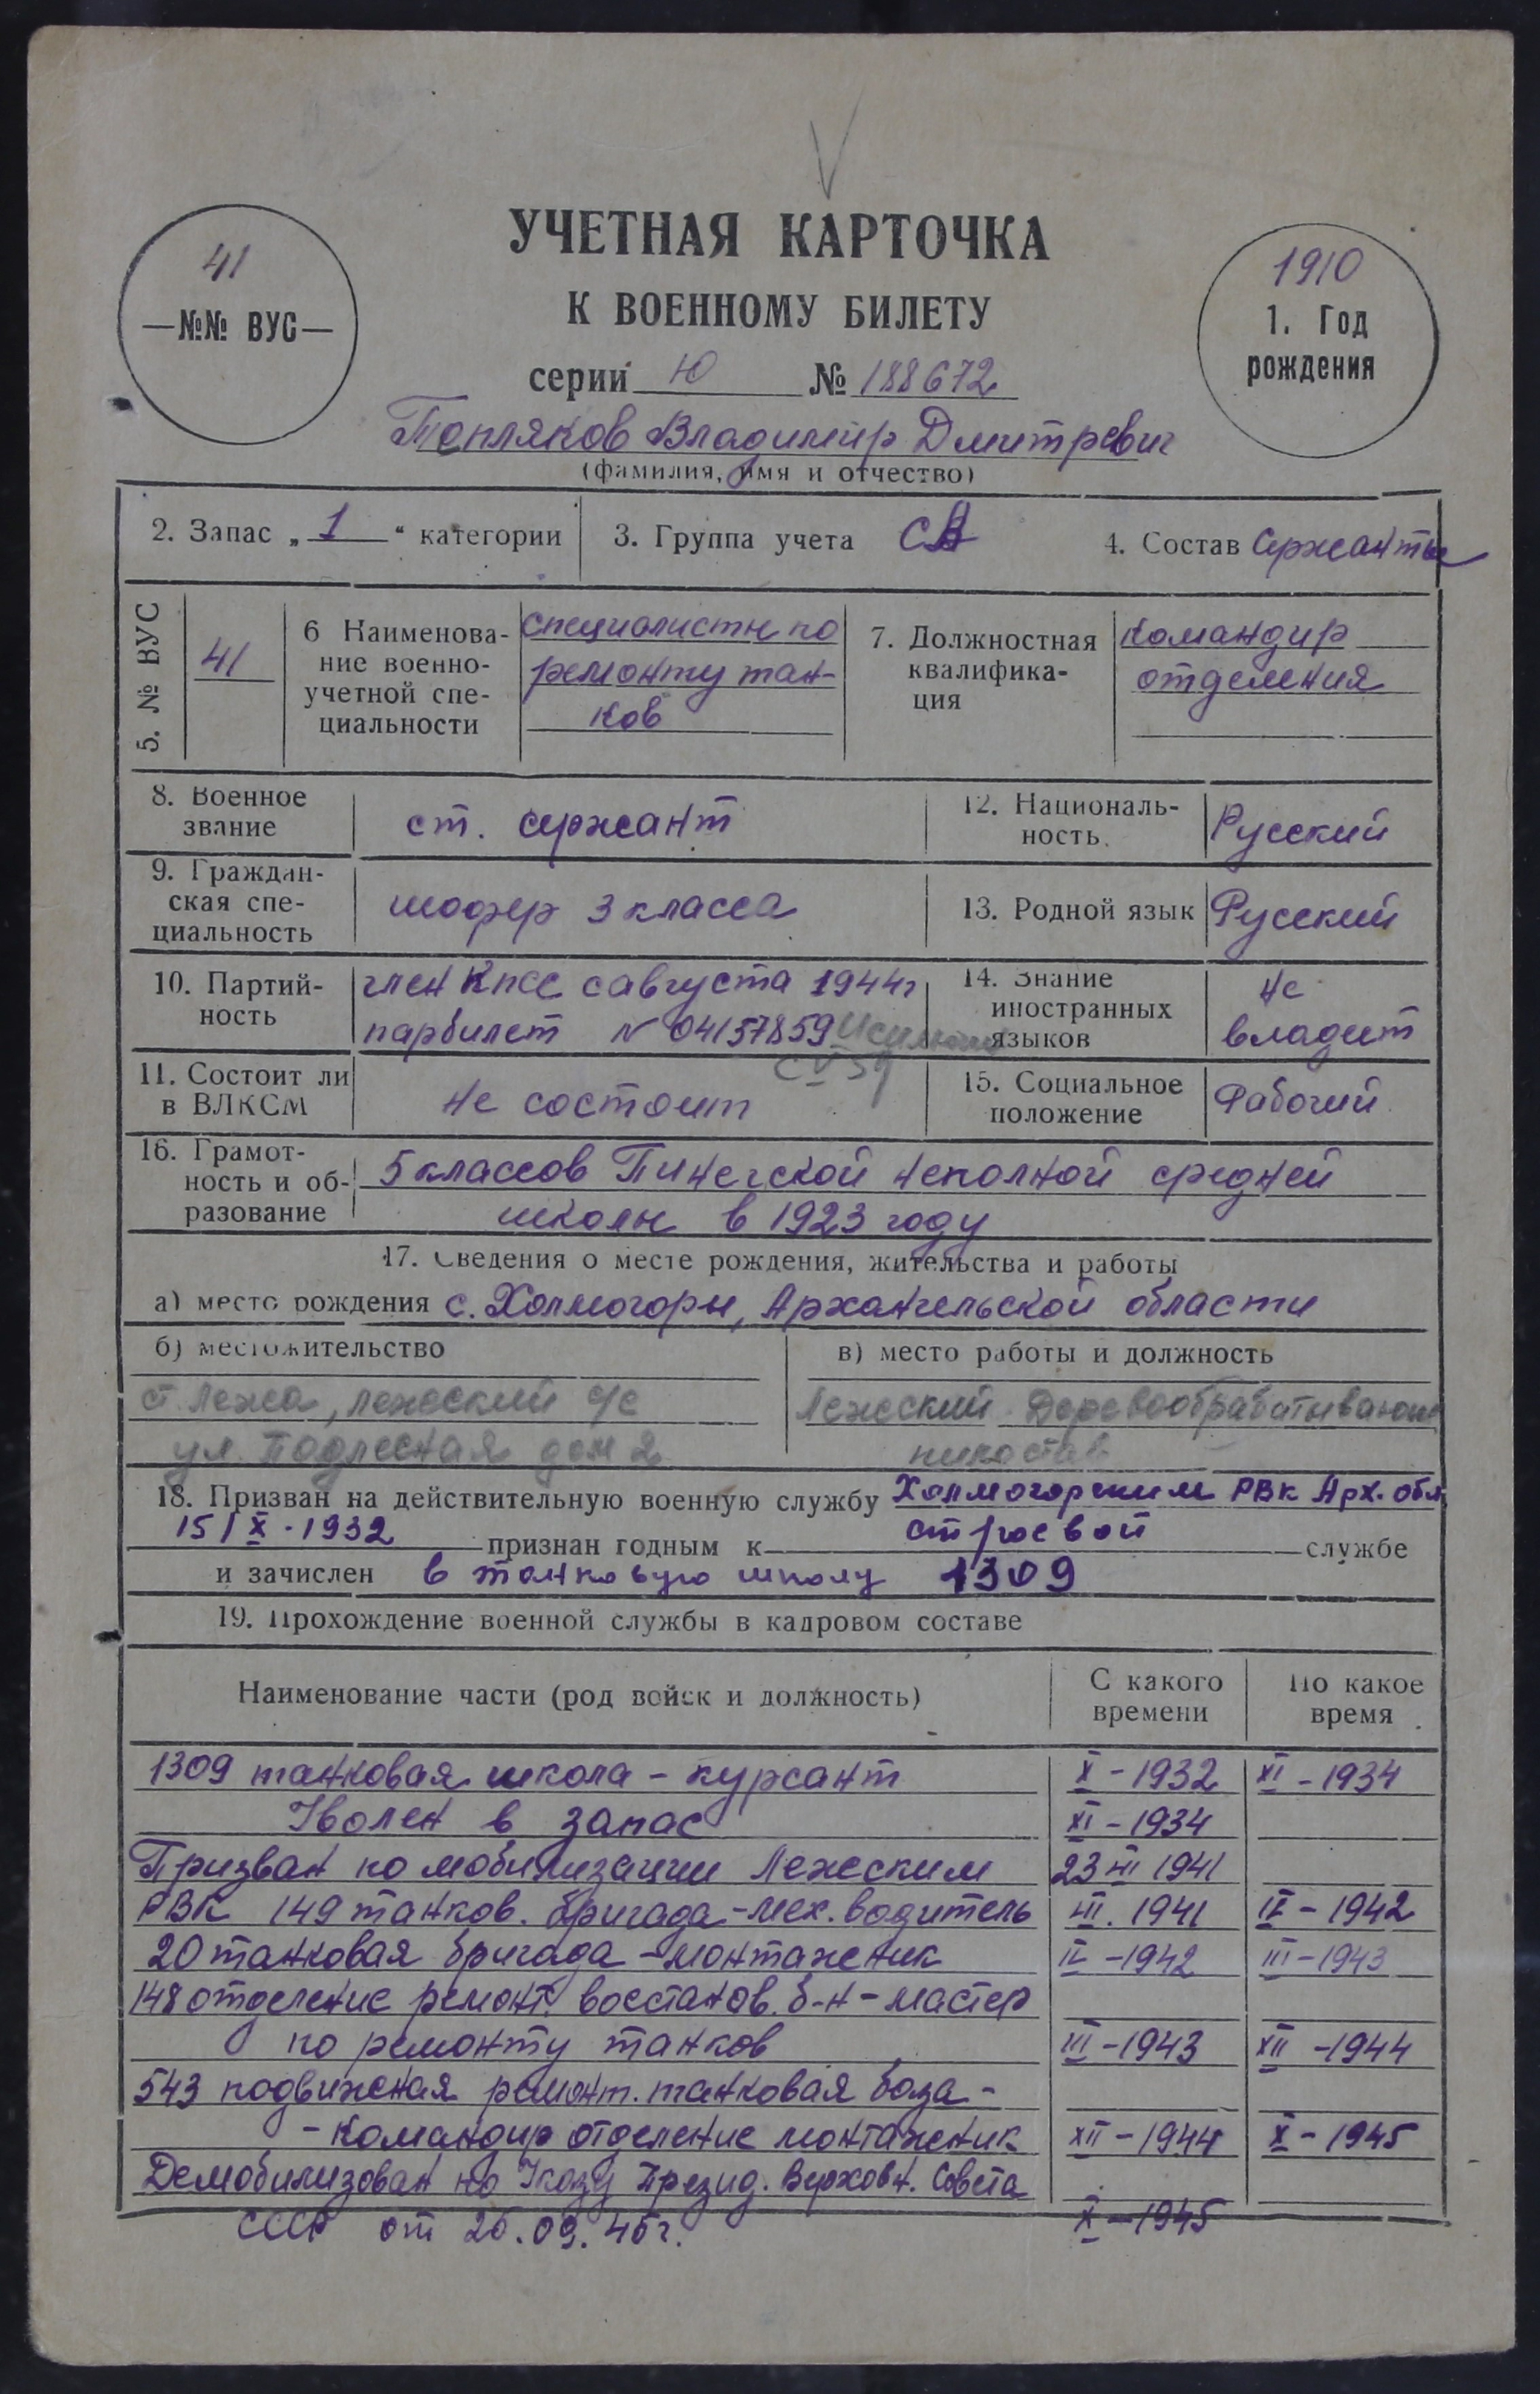 УЧЕТНАЯ КАРТОЧКА
К ВОЕННОМУ БИЛЕТУ
41
—№№ ВУС—
1910
1. Год
рождения
серии Ю № 188672
Топляков Владимир Дмитревич
(фамилия, имя и отчество)
2. Запас „ 1 “ категории
3. Группа учета СА
4. Состав Сержанты
5. № ВУС
41
6 Наименова-
ние военно-
учетной спе-
циальности
специалисты по
ремонту тан-
ков
7. Должностная
квалифика-
ция
командир
отделения
8. Военное
звание
ст. сержант
12. Националь-
ность.
Русский
9. Граждан-
ская спе-
циальность
шофер 3 класса
13. Родной язык
Русский
10. Партий-
ность
член КПСС с августа 1944г
парбилет № 04157859
14. Знание
иностранных
языков
не
владеет
11. Состоит ли
в ВЛКСМ
не состоит
15. Социальное
положение
Рабочий
16. Грамот-
ность и об-
разование
5 классов Пинегской неполной средней
школы в 1923 году
17. Сведения о месте рождения, жительства и работы
а) место рождения с. Холмогоры, Архангельской области
б) местожительство
ст. Лежа, Лежский с/с
ул. Подлесная дом 2
в) место работы и должность
Лежский Деревообрабатывающ
18. Призван на действительную военную службу Холмогорским РВК Арх. обл
15/X-1932 признан годным к строевой службе
и зачислен в танковую школу 1309
19. Прохождение военной службы в кадровом составе
Наименование части (род войск и должность)
С какого
времени
По какое
время
1309 танковая школа - курсант X - 1932 XI - 1934
Уволен в запас XI - 1934
Призван по мобилизации Лежским 23 III 1941
РВК 149 танков. бригада - мех. водитель III. 1941 II - 1942
20 танковая бригада - монтажник II - 1942 III - 1943
148 отделение ремонт. восстанов. б-н - мастер
по ремонту танков III - 1943 XII - 1944
543 подвижная ремонт. танковая база -
- командир отделение монтажник XII - 1944 X - 1945
Демобилизован по Указу Презид. Верховн. Совета
СССР от 25.09.45г. X - 1945